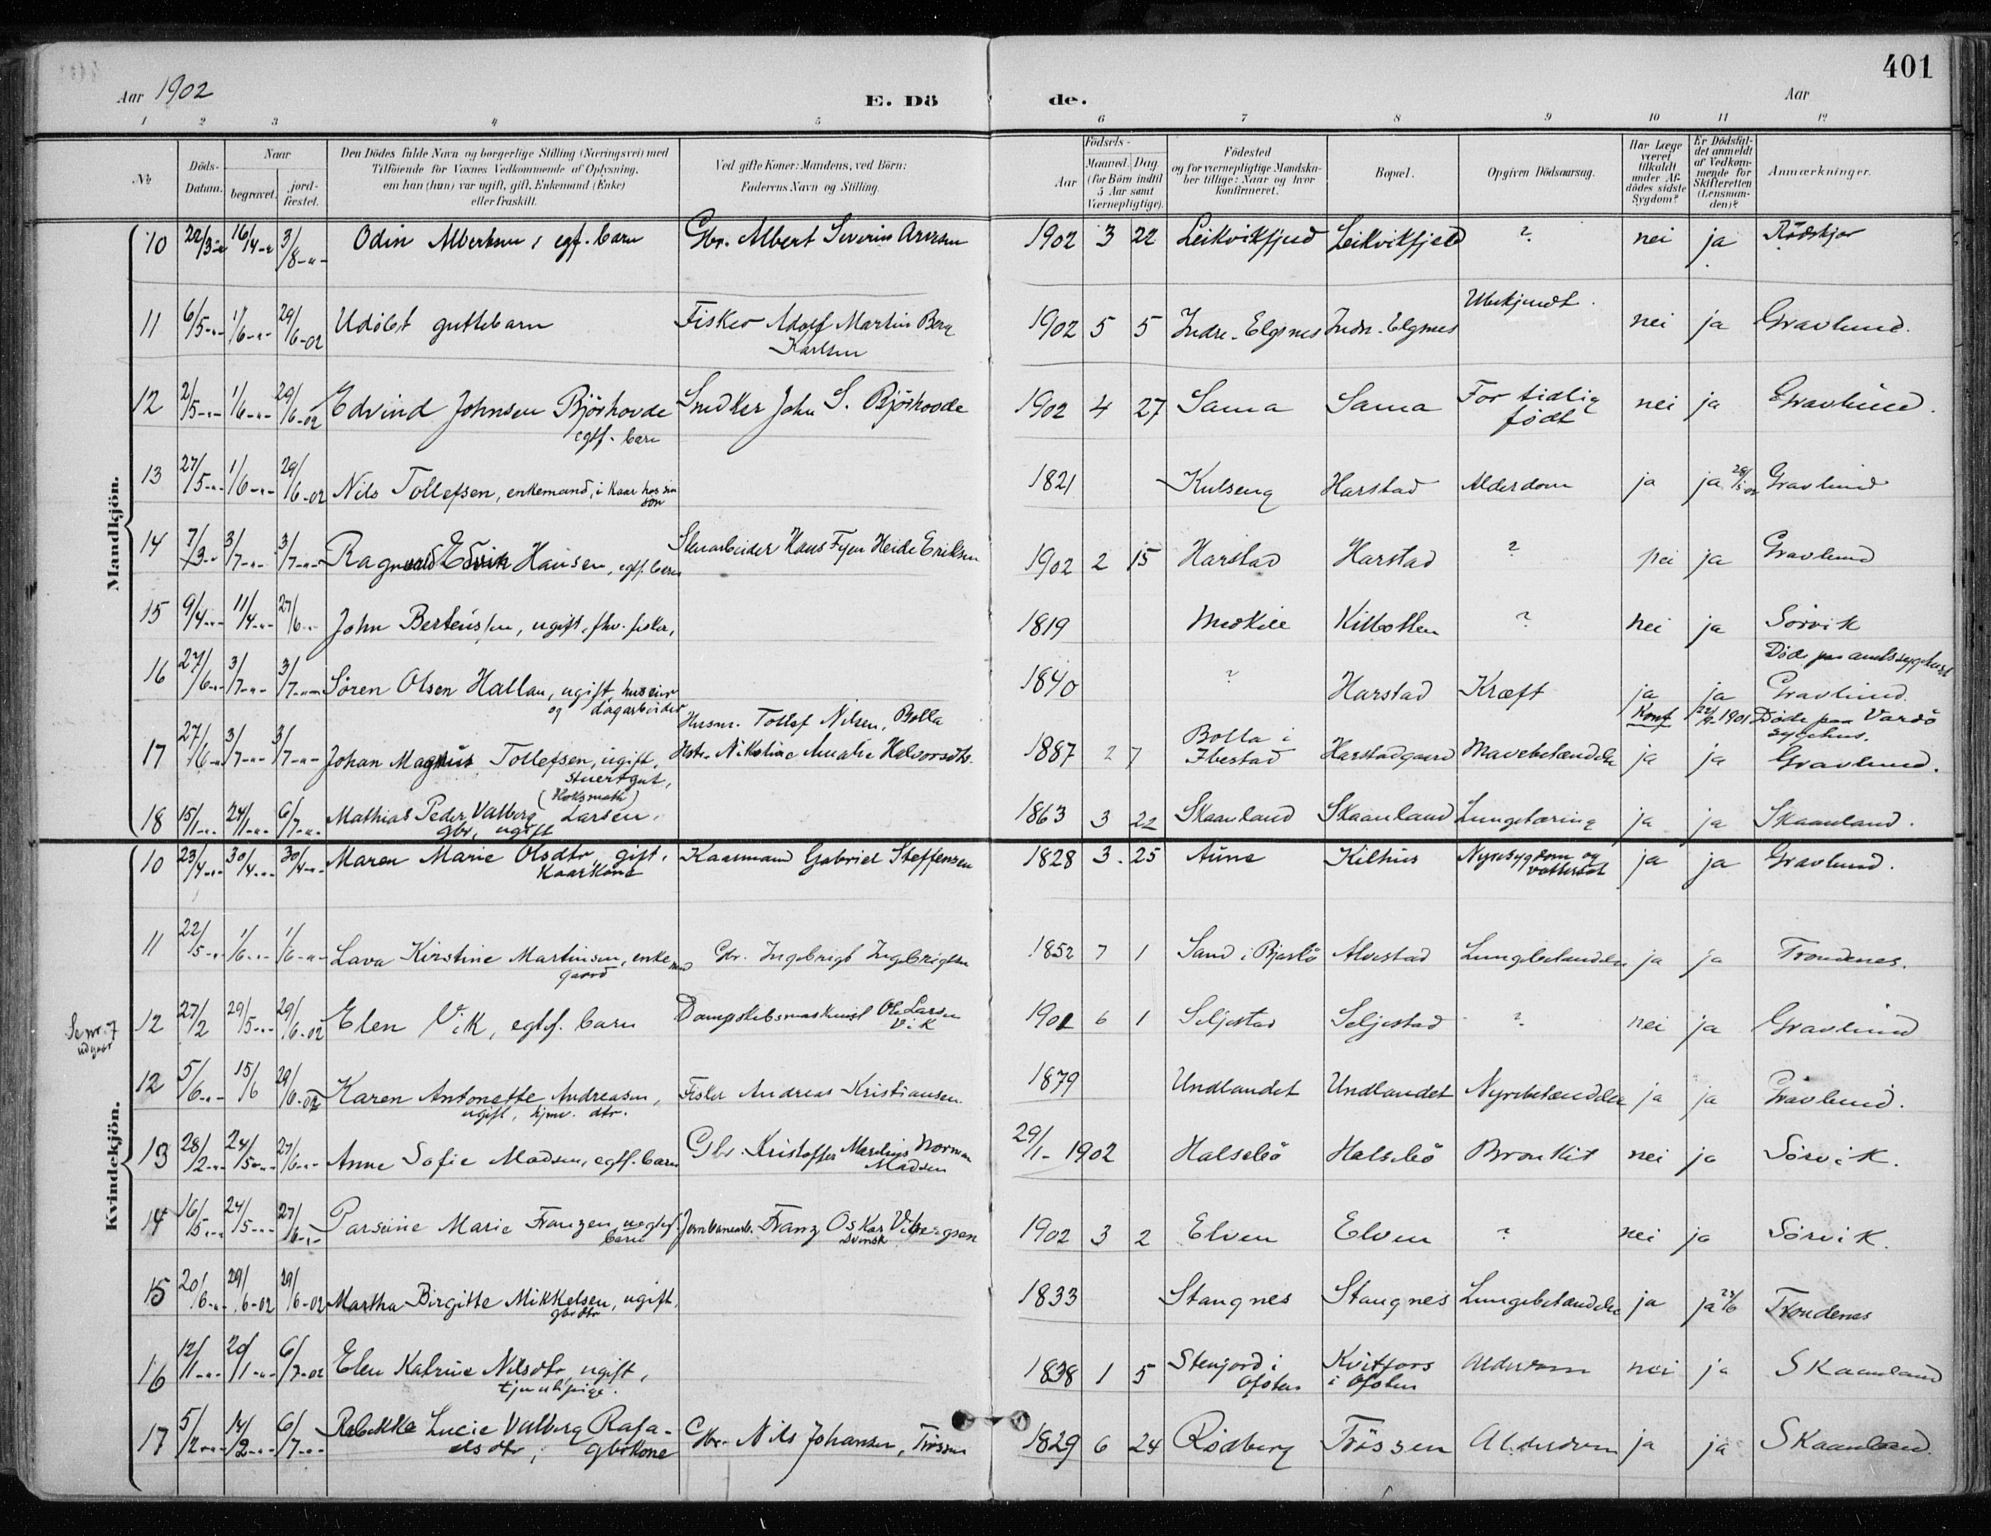 401
Aar 1902
E. Dö de.
Aar
1 2 3 4 5 6 7 8 9 10 11 12
№
Döds-Datum.
Naar
begravet.
jord-fæstet.
Den Dödes fulde Navn og borgerlige Stilling (Næringsvei) med
Tilföiende for Voxnes Vedkommende af Oplysning,
om han (hun) var ugift, gift, Enkemand (Enke)
eller fraskilt.
Ved gifte Koner: Mandens, ved Börn:
Faderens Navn og Stilling.
Födsels-
Aar
Maaned. Dag.
(for Börn indtil
5 Aar samt
Værnepligtige).
Födested
og for værnepligtige Mandska-
ber tillige: Naar og hvor
konfirmeret.
Bopæl.
Opgiven Dödsaarsag.
Har Læge
været
tilkaldt
under Af-
dödes sidste
Sygdom?
Er Dödsfal-
det anmeldt
af Vedkom-
mende for
Skifteretten
(Lensman-
den)?
Anmærkninger.
Mandkjön.
10 22/3 16/4 3/8 Odin Albertsen, egf. barn Gbr. Albert Severin 1902 3 22 Leikvikfjeld Leikvikfjeld ? nei ja
11 6/5 1/6 29/6-02 Udöbt guttebarn Fisker Adolf Martin Berg 1902 5 5 Indre-Elgsnes Indre-Elgsnes Ubekjendt. nei ja Gravlund.
Karlsen
12 2/5 1/6 29/6-02 Edvind Johnsen Bjöshovde Snedker John S. Bjöshovde 1902 4 27 Sama Sama For tidlig nei ja Gravlund.
egtf. barn
födt
13 27/5 1/6 29/6-02 Nils Tollefsen, enkemand, i kaar hos sin 1821 Kulseng Harstad Alderdom ja ja Gravlund
søn
14 7/3 3/7 3/7 Hansen, egtf. barn Hans Heide Eriksen 1902 2 15 Harstad Harstad ? nei ja Gravlund
15 9/4 11/4 27/6 John Berteussen, ugift, fhv. fisker, 1819 Medkile Kilbotten ? nei ja Sörvik
Död paa amtssygehuset
16 27/6 3/7 3/7 Sören Olsen Hallan, ugift, huseier 1840 ? Harstad Kræft ja ja Gravlund.
og dagarbeider
Husm. Tollef Nilsen, Bolla
Konf 1901 Döde paa Vardö
sygehus.
17 27/6 3/7 3/7 Johan Magnus Tollefsen, ugift, Hstr. Nikoline Amalie Halvorsdtr. 1887 2 7 Bolla i Harstadgaard Mavebetændelse ja ja Gravlund.
Ibestad
stuertgut,
(Koksmath)
18 15/1 24/1 6/7 Mathias Peder Valberg Larsen, 1863 3 22 Skaanland Skaanland Lungetæring ja ja Skaanland.
gbr, ugift
Kvindekjön.
10 23/4 30/4 30/4 Maren Marie Olsdtr, gift, Kaarmand Gabriel Steffensen 1828 3 25 Aune Kilhus Nyresygdom og ja ja Gravlund.
Kaarkone
vattersot
11 22/5 1/6 1/6 Lava Kirstine Martinsen, enke Gbr. Ingebrigt Ingebrigtsen 1852 7 1 Sand i Bjarkö Alvestad Lungebetændelse ja ja Trondenes.
Se nr. 7
udgaar
12 27/2 29/5 29/6-02 Elen Vik, egtf. barn Dampskibsmaskinist Ole Larsen 1901 6 1 Seljestad Seljestad ? nei ja Gravlund
Vik
12 5/6 15/6 29/6-02 Karen Antonette Andreasen, Fisker Andreas Kristiansen 1879 Undlandet Undlandet Nyrebetændelse ja ja Gravlund.
ugift, hjmv. dtr.
13 28/2 24/5 27/6 Anne Sofie Madsen, egtf. barn Gbr. Kristoffer Norman 29/1- 1902 Halsebö Halsebö Bronkit nei ja Sörvik.
Madsen
14 16/5 24/5 27/6 Marie Franzen, uegtef. Jernbanearb. Franz Oskar 1902 3 2 Elven Elven ? nei ja Sörvik.
barn
svensk
15 20/6 29/6-02 29/6-02 Martha Birgitte Mikkelsen, ugift, 1833 Stangnes Stangnes Lungebetændelse ja ja Trondenes
gbrdtr
16 12/1 20/1 6/7-02 Elen Katrine Nilsdtr, ugift, 1838 1 5 Stenjord i Kvitfors Alderdom nei ja Skaanland
tjenestepige.
Ofoten i Ofoten
17 5/2 14/2 6/7 Rebekka Lucie Valberg Rafa- Gbr. Nils Johansen, Trössen 1829 6 24 Rødberg Trössen Alderdom ja ja Skaanland.
elsdtr, gbrkone